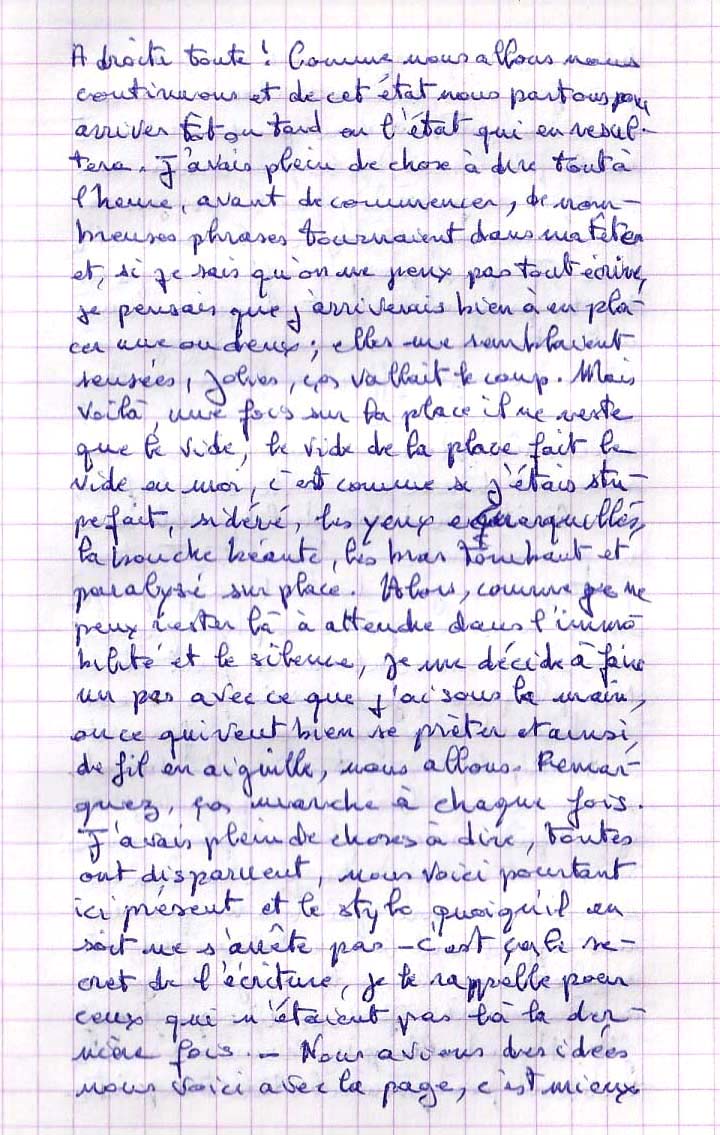 A droite toute ! Comme nous allons nous
continuons et de cet état nous partons pour
arriver tôt ou tard en l'état qui en resul-
tera. J'avais plein de chose à dire tout à
l'heure, avant de commencer, de nom-
breuses phrases tournaient dans ma tête
et, si je sais qu'on ne peux pas tout écrire,
je pensais que j'arriverais bien à en pla-
cer une ou deux ; elles me semblaient
sensées, jolies, ça vallait le coup. Mais
voilà, une fois sur la place il ne reste
que le vide, le vide de la place fait le
vide en moi, c'est comme si j'étais stu-
péfait, sidéré, les yeux écarquillés,
la bouche béante, les bras tombant et
paralysé sur place. Alors, comme je ne
peux rester là à attendre dans l'immo
bilité et le silence, je me décide à faire
un pas avec ce que j'ai sous la main,
ou ce qui veut bien se prêter et ainsi,
de fil en aiguille, nous allons. Remar-
quez, ça marche à chaque fois.
J'avais plein de choses à dire, toutes
ont disparuent, nous voici pourtant
ici présent et le stylo quoiqu'il en
soit ne s'arrête pas – c'est ça le se-
cret de l'écriture, je le rappelle pour
ceux qui n'étaient pas là la der-
nière fois. – Nous avions des idées
nous voici avec la page, c'est mieux